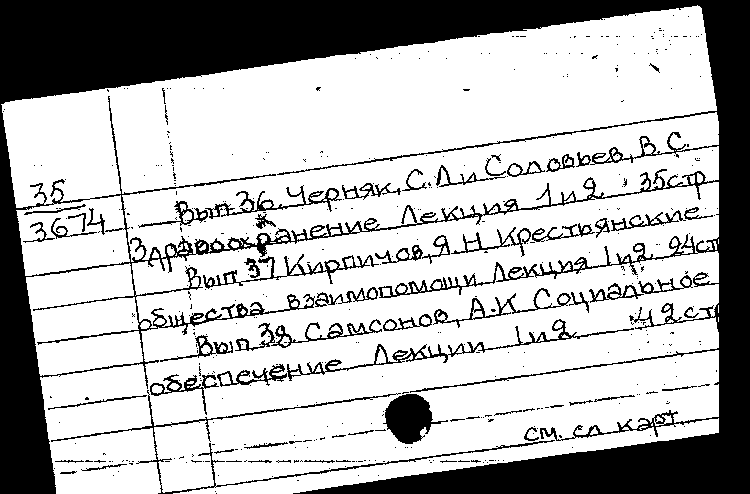 35
3674
Вып. 36. Черняк, С.Л и Соловьев, В.С.
Здравоохранение Лекция 1 и 2. 35 стр
Вып. 37 Кирпичов, Я.Н. Крестьянские
общества взаимопомощи. Лекция 1 и 2 24 ст
Вып. 38. Самсонов, А.К Социальное
обеспечение Лекции 1 и 2. 42 стр
см. сл карт.